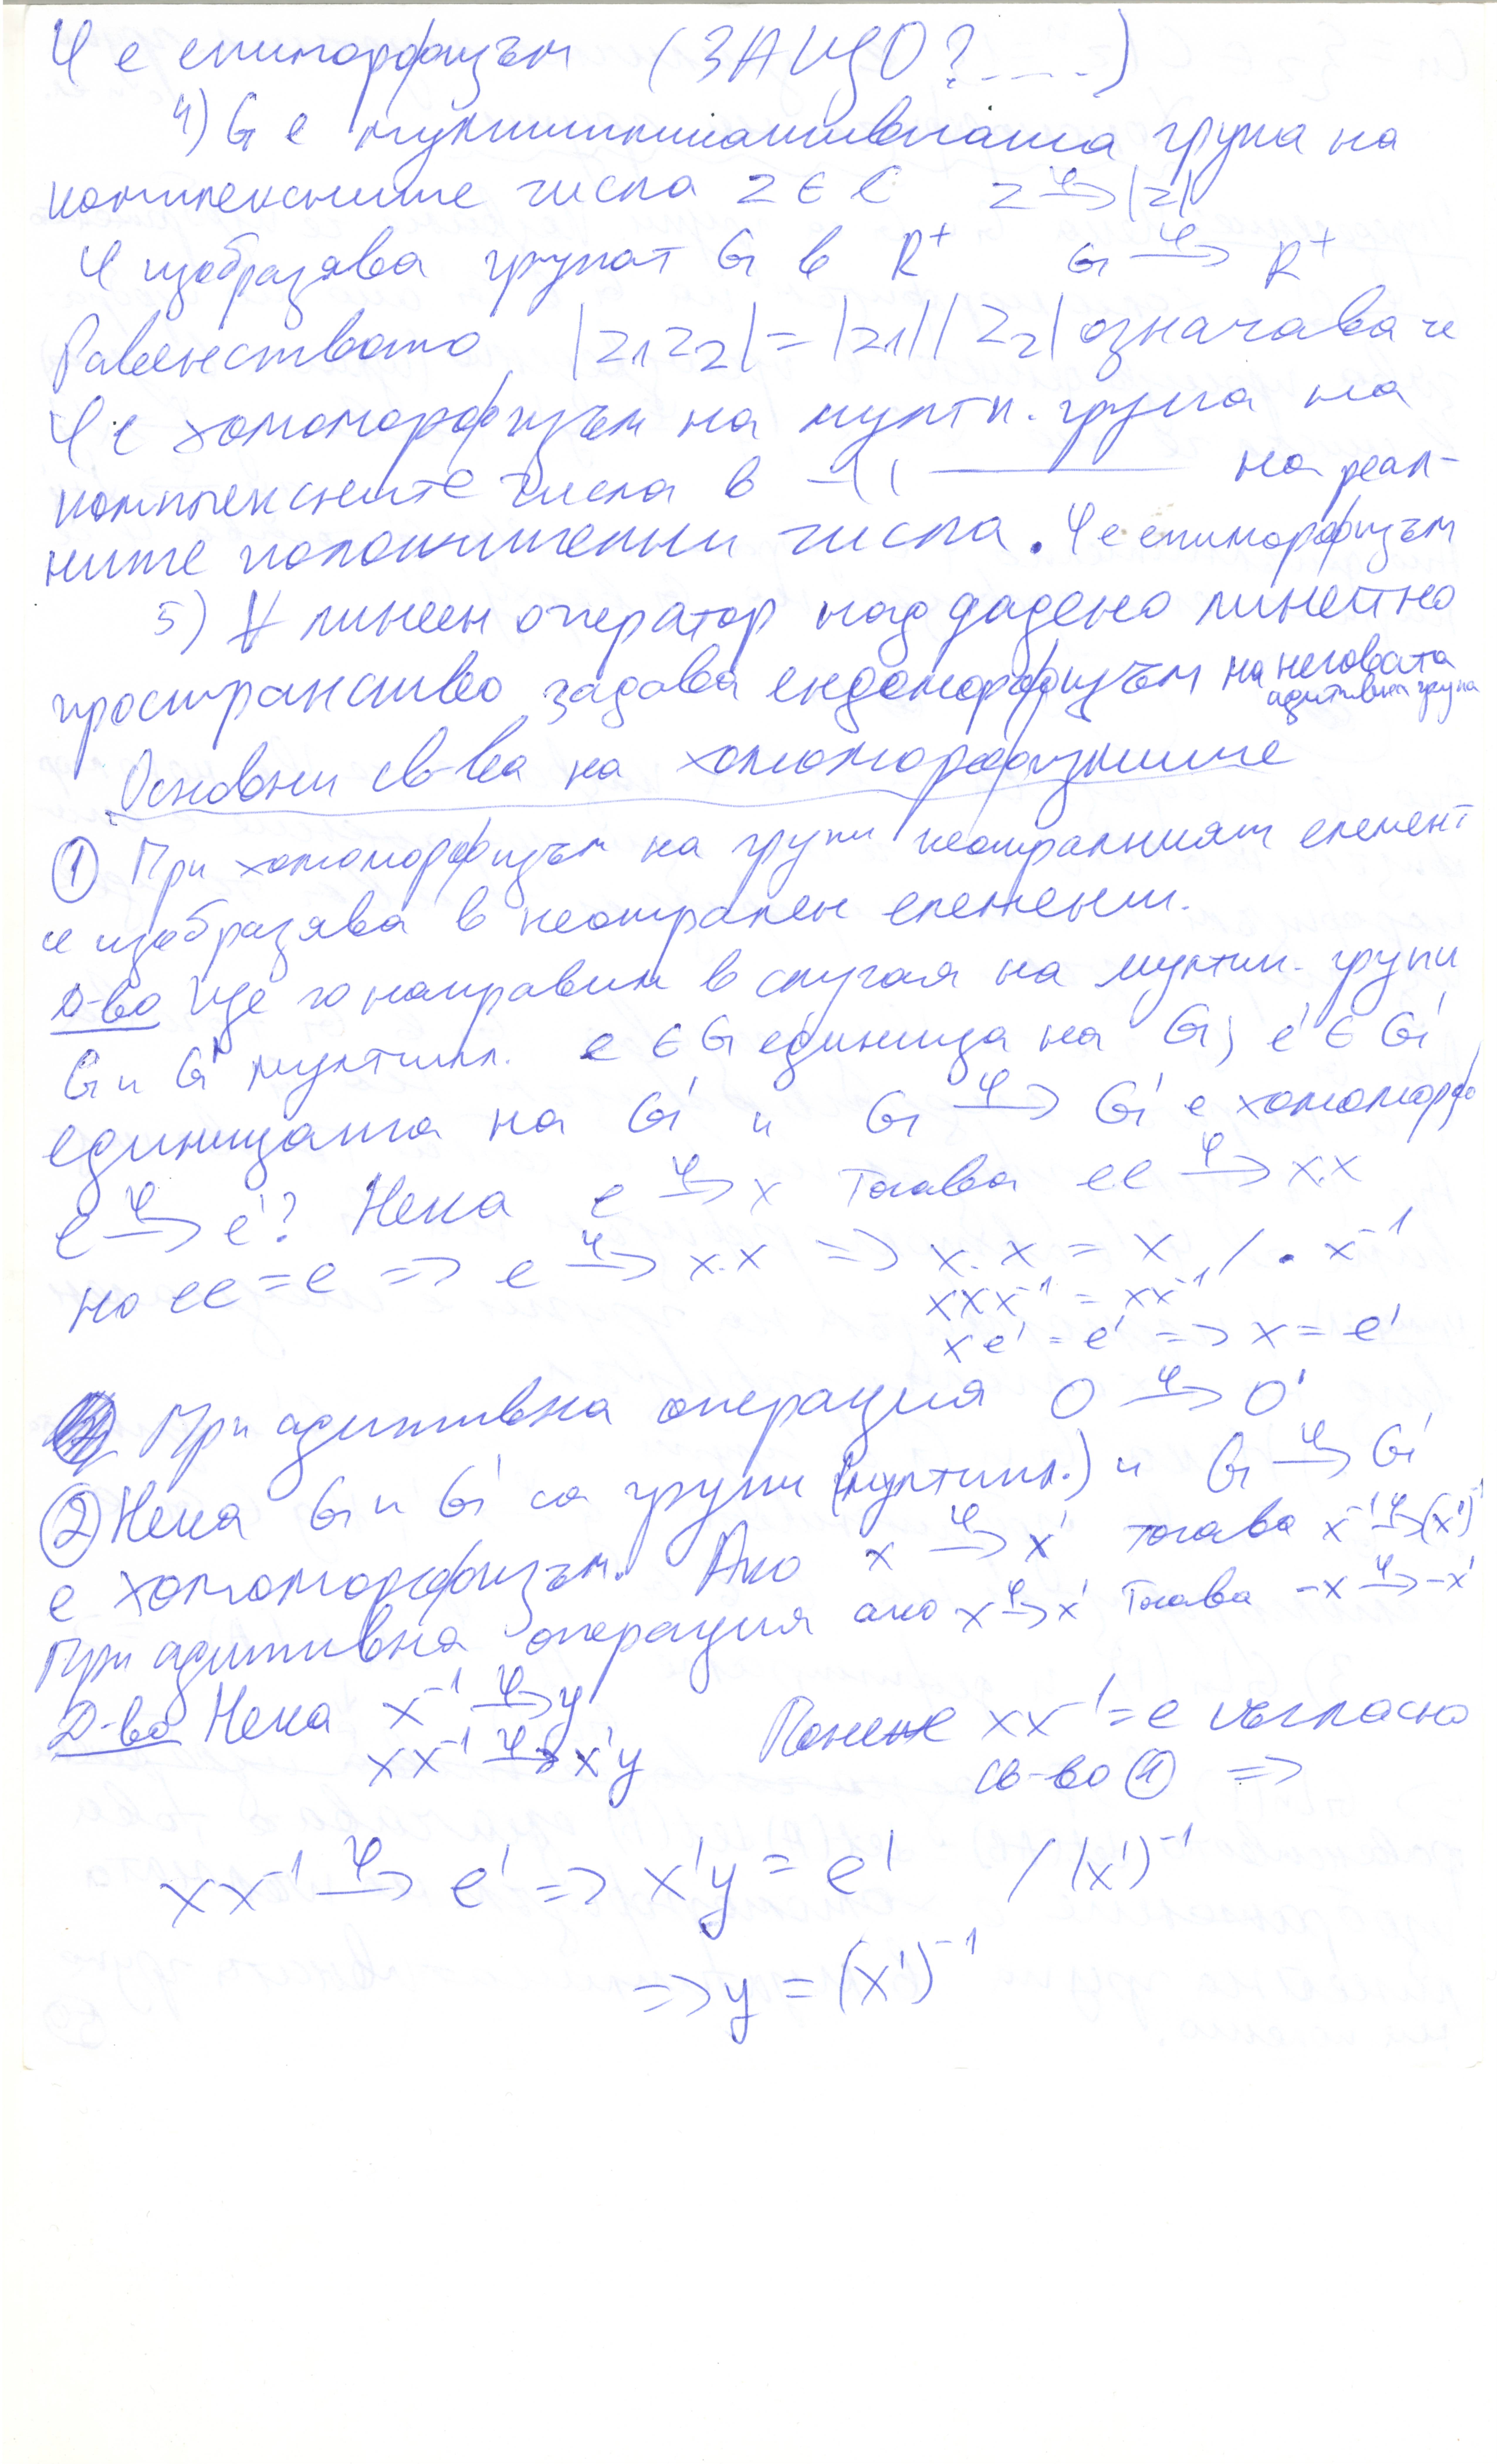 φ е епиморфизъм (ЗАЩО?....)
4) G е мултипликативната група на
комплексните числа z ∈ C z →φ |z|
φ изобразява групат G в R⁺ G →φ R⁺
Равенството |z₁z₂| = |z₁||z₂| означава че
φ е хомоморфизъм на мултп. група на
комплексните числа в –〃– на реал-
ните положителни числа. φ е епиморфизъм
5) ∀ линеен оператор над дадено линейно
пространство задава ендоморфизъм на неговата
адитивна група
Основни св-ва на хомоморфизмите
① При хомоморфизъм на групи неутралният елемент
се изобразява в неутрален елемент.
Д-во Ще го направим в случая на мултип. групи
G и G' мултипл. e ∈ G единица на G, e' ∈ G'
единицата на G' и G →φ G' е хомоморф
e →φ e'? Нека e →φ x Тогава ee →φ x.x
но ee = e => e →φ x.x => x.x = x / . x⁻¹
xxx⁻¹ = xx⁻¹
xe' = e' => x = e'
При адитивна операция 0 →φ 0'
② Нека G и G' са групи (мултипл.) и G →φ G'
е хомоморфизъм. Ако x →φ x' тогава x⁻¹ →φ (x')⁻¹
При адитивна операция ако x →φ x' Тогава -x →φ -x'
Д-во Нека x⁻¹ →φ y Понеже xx⁻¹ = e съгласно
xx⁻¹ →φ x'y св-во ① =>
xx⁻¹ →φ e' => x'y = e' / (x')⁻¹
=> y = (x')⁻¹